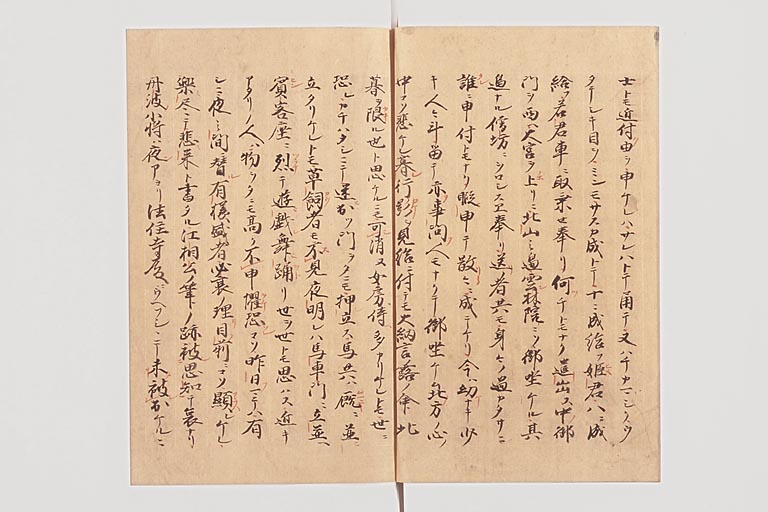 士トモ近付由ヲ申ケレハサレハトテ角テ又ハチカマシクウ
タテシキ目ヲハミシモサスカ成トテ十ニ成給フ姫君八ニ成
給フ若君車ニ取乗セ奉リ何クヲトモナク遣出ス中御
門ヲ西ヘ大宮ヲ上リニ北山ノ邊雲林院ニソ御坐ケル其
邊ナル僧坊ニヲロシスヱ奉リ送者共モ身々ノ過カタサニ
誰ニ申付トモナク暇申テ散々ニ成ニケリ今ハ幼ナキ少
キ人々計留テ亦事問人モナクテ御坐ケル北方ノ心ノ
中ヲソ悲ケレ暮行影ヲ見給ニ付テモ大納言ノ露ノ命
暮ヲ限ル世ト思ケルニモ可消又女房侍多カリケレトモ世ニ
恐レカチハタシニテ迷出ツ門ヲタニモ押立ス馬共ハ厩ニ並
立タリケレトモ草飼者モ不見夜明レハ馬車門ニ立並
賓客座ニ烈テ遊戯舞踊リ世ヲ世トモ思ハス近キ
アタリノ人ハ物ヲタニモ高ク不申懼恐コソ昨日マテハ有
シニ夜ノ間ニ替有様盛者必衰ノ理目前ニコソ顕レケレ
樂尽テ悲来ト書タル江相公ノ筆ノ跡被思知テ哀ナリ
丹波少将ハ夜
法住寺殿ニ
未被出ケルニ